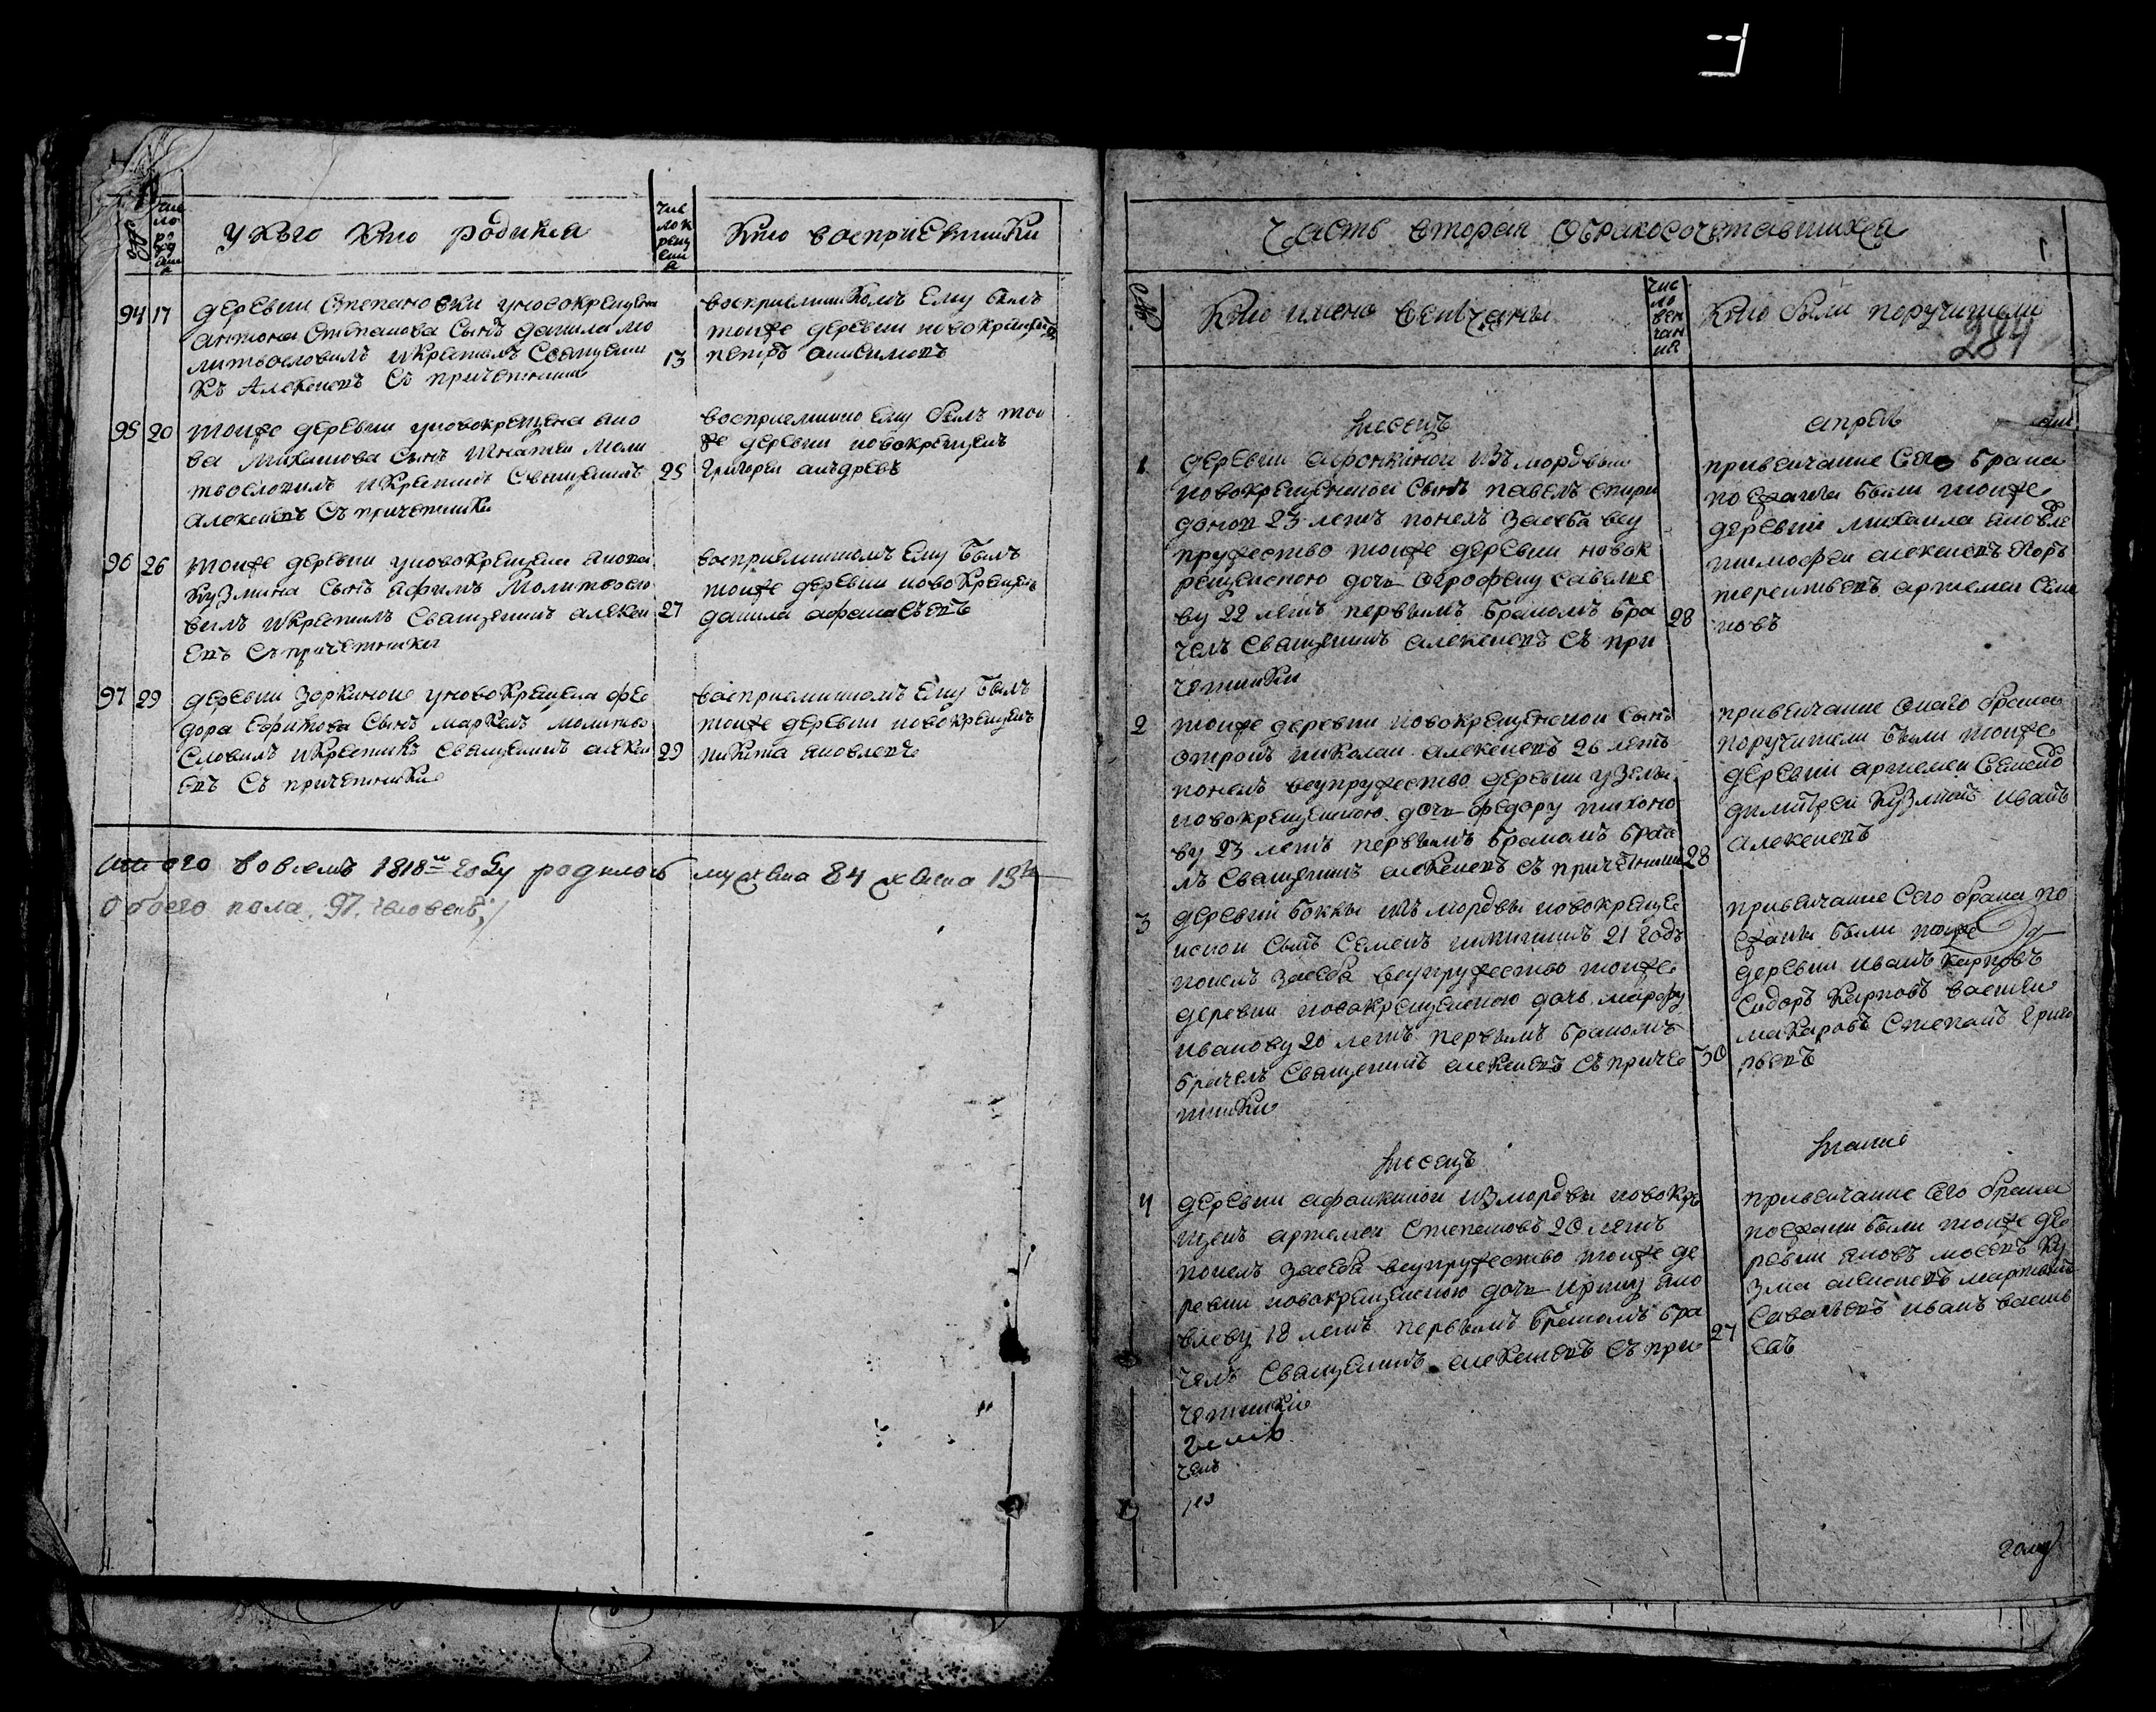 №
число рождения
У кого кто родился
число крещения
Кто восприемники
94 17 деревни Степановки уновокрещена
антона Степанова Сынъ данила мо
литвословилъ и крестилъ Священни
къ Алексеевъ Съ причетники
13
восприемникомъ Ему былъ
тоиже деревни новокрещенъ
петръ анисимовъ
95 20 тоиже деревни уновокрещена яко
ва михаилова Сынъ Игнатеи моли
твословилъ и крестилъ Священникъ
алексеевъ Съ причетники
25
восприемнико Ему былъ тои
же деревни новокрещенъ
Григореи андревъ
96 26 тоиже деревни уновокрещена якова
кузмина Сынъ Ефимъ Молитвосло
вилъ и крестилъ Священникъ алексе
евъ Съ причетники
27
восприемникомъ Ему былъ
тоиже деревни новокрещенъ
данила афанасьевъ
97 29 деревни уновокрещена фе
дора Сынъ маркелъ молитво
Словилъ и крестилъ Священникъ алексе
евъ Съ причетники
29
восприемникомъ Ему былъ
тоиже деревни новокрещенъ
никита яковлевъ
итого вовсемъ 1818 году родилось мужеска 84 женска 13
обоего пола 97 человекъ
Часть вторая обракосочетавшихся
№
Кто имено венчаны
число венчания
Кто были поручители
284
месецъ апрель
1 деревни афонкинои изъ мордвы
новокрещеннои Сынъ павелъ спири
доновъ 23 летъ понелъ засебя всу
пружество тоиже деревни новок
рещенною дочь огрофену савелье
ву 22 летъ первымъ бракомъ бра
челъ Священникъ алексеевъ Съ при
четники
28
привенчание Сего брака
поезжана были тоиже
деревни михаила яковле
тимофеи алексеевъ Егоръ
терентьевъ артемеи Семе
новъ
2 тоиже деревни новокрещеннои Сынъ
отрокъ николаи алексеевъ 26 летъ
понелъ всупружество деревни узелы
новокрещенною дочь федору тихоно
ву 23 летъ первымъ бракомъ брачи
лъ Священникъ алексеевъ Съ причетники
28
привенчание Онаго брака
поручители были тоиже
деревни артемеи Семено
димитреи кузминъ иванъ
алексеевъ
3 деревни боклы изъ мордвы новокреще
ннои Сынъ Семенъ никитинъ 21 годъ
понелъ засебя всупружество тоиже
деревни новокрещенною дочь марфу
иванову 20 летъ первымъ бракомъ
брачелъ Священникъ алексеевъ Съ приче
тники
30
привенчание Сего брака по
езжаны были тоиже
деревни иванъ карповъ
Сидоръ карповъ васили
макаровъ Степанъ Григо
рьевъ
месецъ маие
4 деревни афонкинои изъ мордвы новокре
щенъ артемеи Степановъ 20 летъ
понелъ засебя всупружество тоиже де
ревни новокрещенною дочь ирину яко
влеву 18 летъ первымъ бракомъ бра
челъ Священникъ алексеевъ Съ при
четники
27
привенчание Сего брака
поезжани были тоиже де
ревни яковъ мосеевъ ку
зма алексеевъ мартынъ
Савельевъ иванъ василь
евъ
челъ